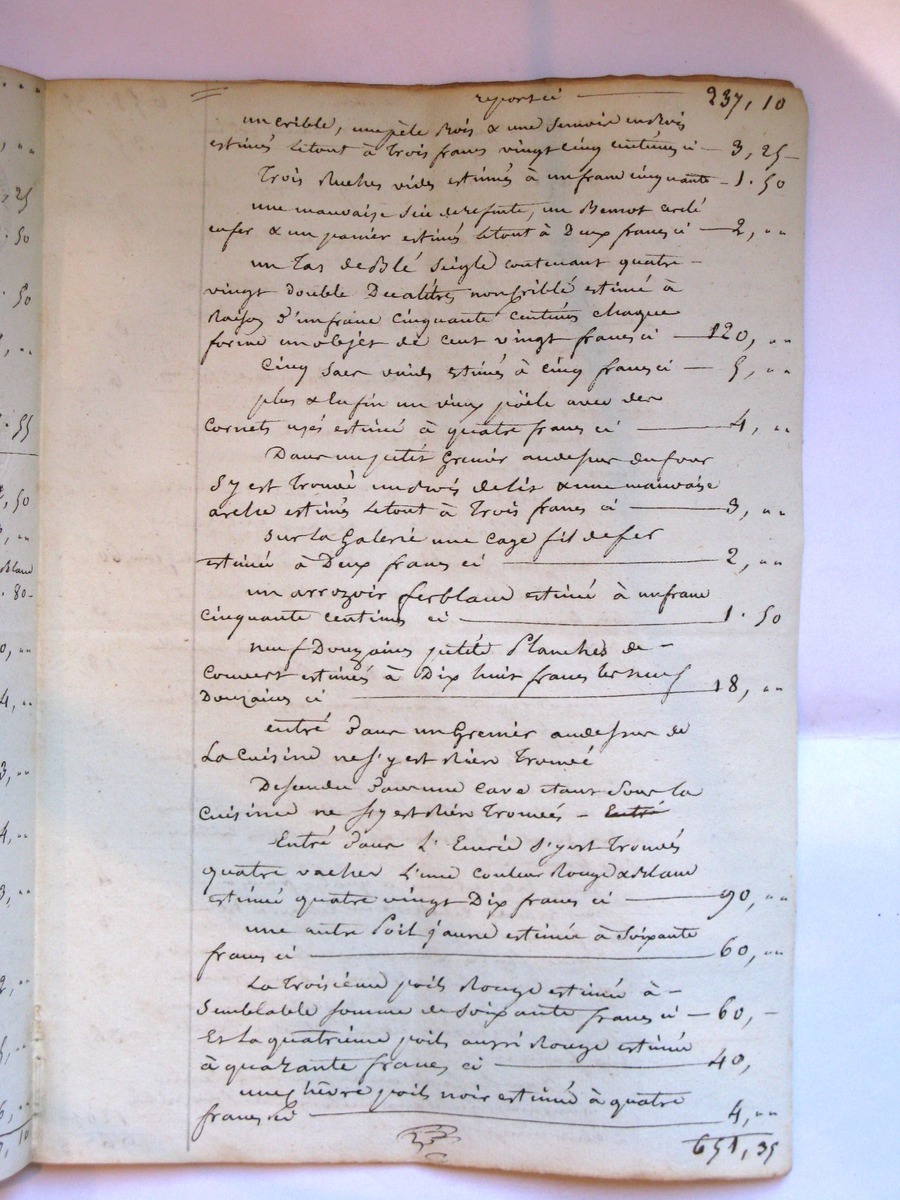 report ci — 237, 10
un crible, une pèle Bois & une Semoir en Bois
estimés letout à Trois francs vingt cinq centimes ci — 3, 25
Trois Ruches vides estimés à un franc cinquante — 1. 50
une mauvaise Scie de refente, un Benot cerclé
enfer & un panier estimés letout à Deux francs ci — 2, "
un Tas de Blé Seigle contenant quatre-
vingt double Decalitres non criblé estimé à
Raison d'un franc cinquante centimes chaque
forme un objet de cent vingt francs ci — 120, "
Cinq Sacs vuides estimés à cinq francs ci — 5, "
plus & Enfin un vieux pöele avec des
Cornets usés estimé à quatre francs ci — 4, "
Dans un petit Grenier audessus du four
S'y est Trouvé un Bois de lit & une mauvaise
arche estimés letout à Trois francs ci — 3, "
Sur la Galerie une Cage fil de fer
estimée à Deux francs ci — 2, "
un arrozoir ferblanc estimé à un franc
cinquante centimes ci — 1. 50
neuf Douzaines petits Planches de-
Couvert estimés à Dix huit francs les neuf
Douzaines ci — 18, "
entré Dans un Grenier audessus de
La Cuisine ne s'y est Rien Trouvé
Descendu Dans une Cave étant Sous la
Cuisine ne s'y est Rien Trouvés - Entré
Entré Dans L'Ecurie S'y est Trouvés
quatre vaches L'une couleur Rouge & Blanc
estimée quatre vingt Dix francs ci — 90, "
une autre Poil jaune estimée à Soixante
francs ci — 60, "
La Troisième poils Rouge estimée à-
Semblable somme de Soixante francs ci — 60, -
Et la quatrième poils aussi Rouge estimée
à quarante francs ci — 40,
une chèvre poils noir estimée à quatre
francs ci — 4, "
651, 35